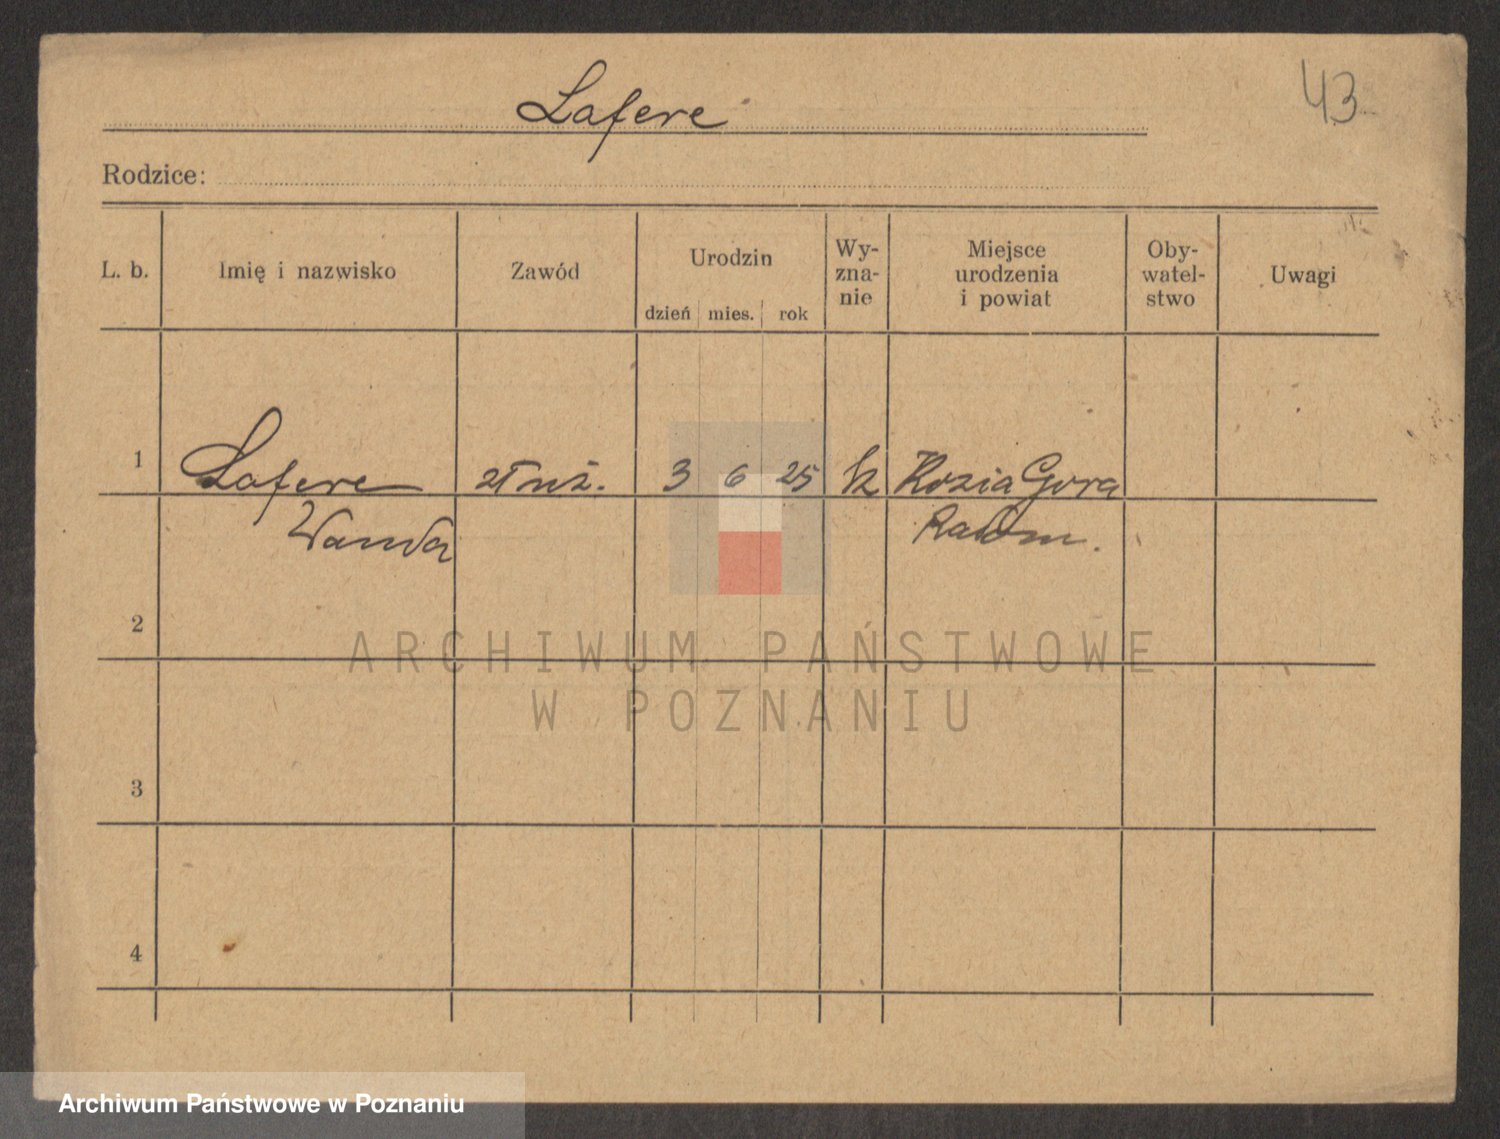 43
Lafere
Rodzice:
L. b. Imię i nazwisko Zawód Urodzin Wy-zna-nie Miejsce urodzenia i powiat Oby-watel-stwo Uwagi
dzień mies. rok
1 Lafere 3 6 25 k Kozia Gora
Wanda Radom.
2
3
4
ARCHIWUM PAŃSTWOWE
W POZNANIU
Archiwum Państwowe w Poznaniu